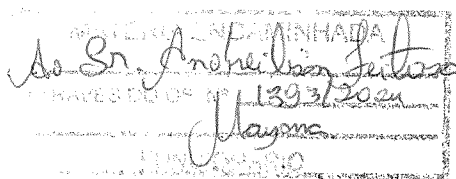 MATÉRIA ENCAMINHADA
Ao Sr. Andreilson Feitosa
ATRAVÉS DO OF Nº 1393/2024
Mayana
FUNCIONÁRIO